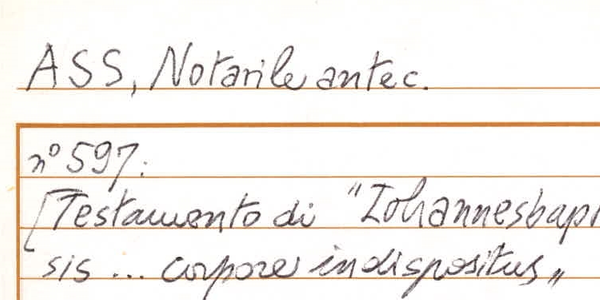 ASS, Notarile antec.
n° 597:
[Testamento di "Iohannesbap
sis ... corpore indispositus"